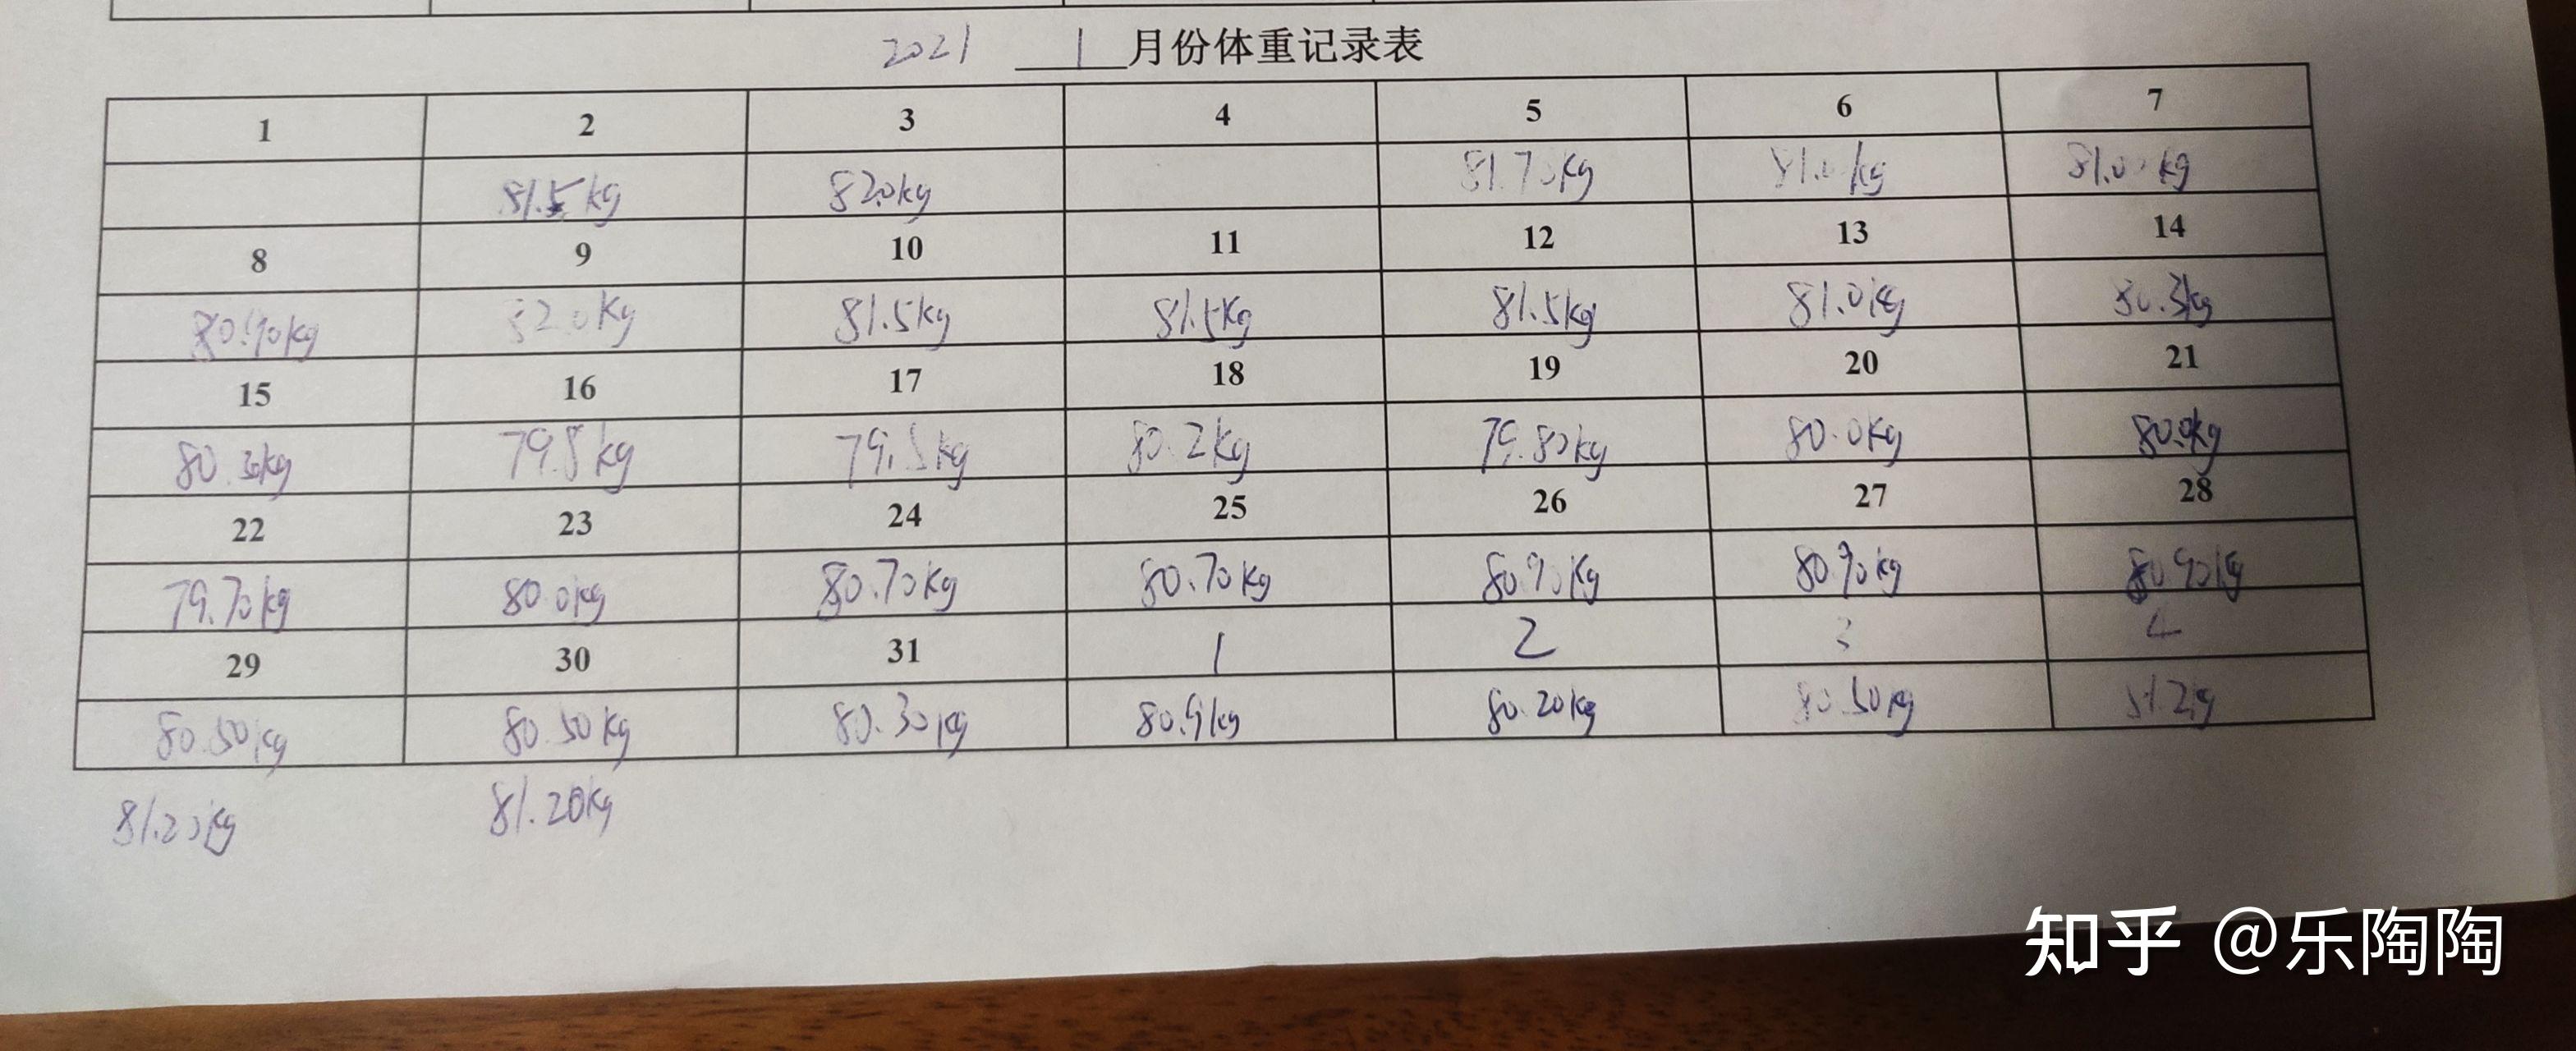 2021 1月份体重记录表
1 2 3 4 5 6 7
81.5kg 82.0kg 81.70kg 81.0kg 81.00kg
8 9 10 11 12 13 14
80.90kg 82.0kg 81.5kg 81.5kg 81.5kg 81.0kg 80.3kg
15 16 17 18 19 20 21
80.30kg 79.8kg 79.5kg 80.2kg 79.80kg 80.0kg 80.0kg
22 23 24 25 26 27 28
79.70kg 80.0kg 80.70kg 80.70kg 80.90kg 80.90kg 80.90kg
29 30 31 1 2 3 4
80.50kg 80.50kg 80.30kg 80.9kg 80.20kg 80.50kg 81.2kg
81.20kg 81.20kg
知乎 @乐陶陶